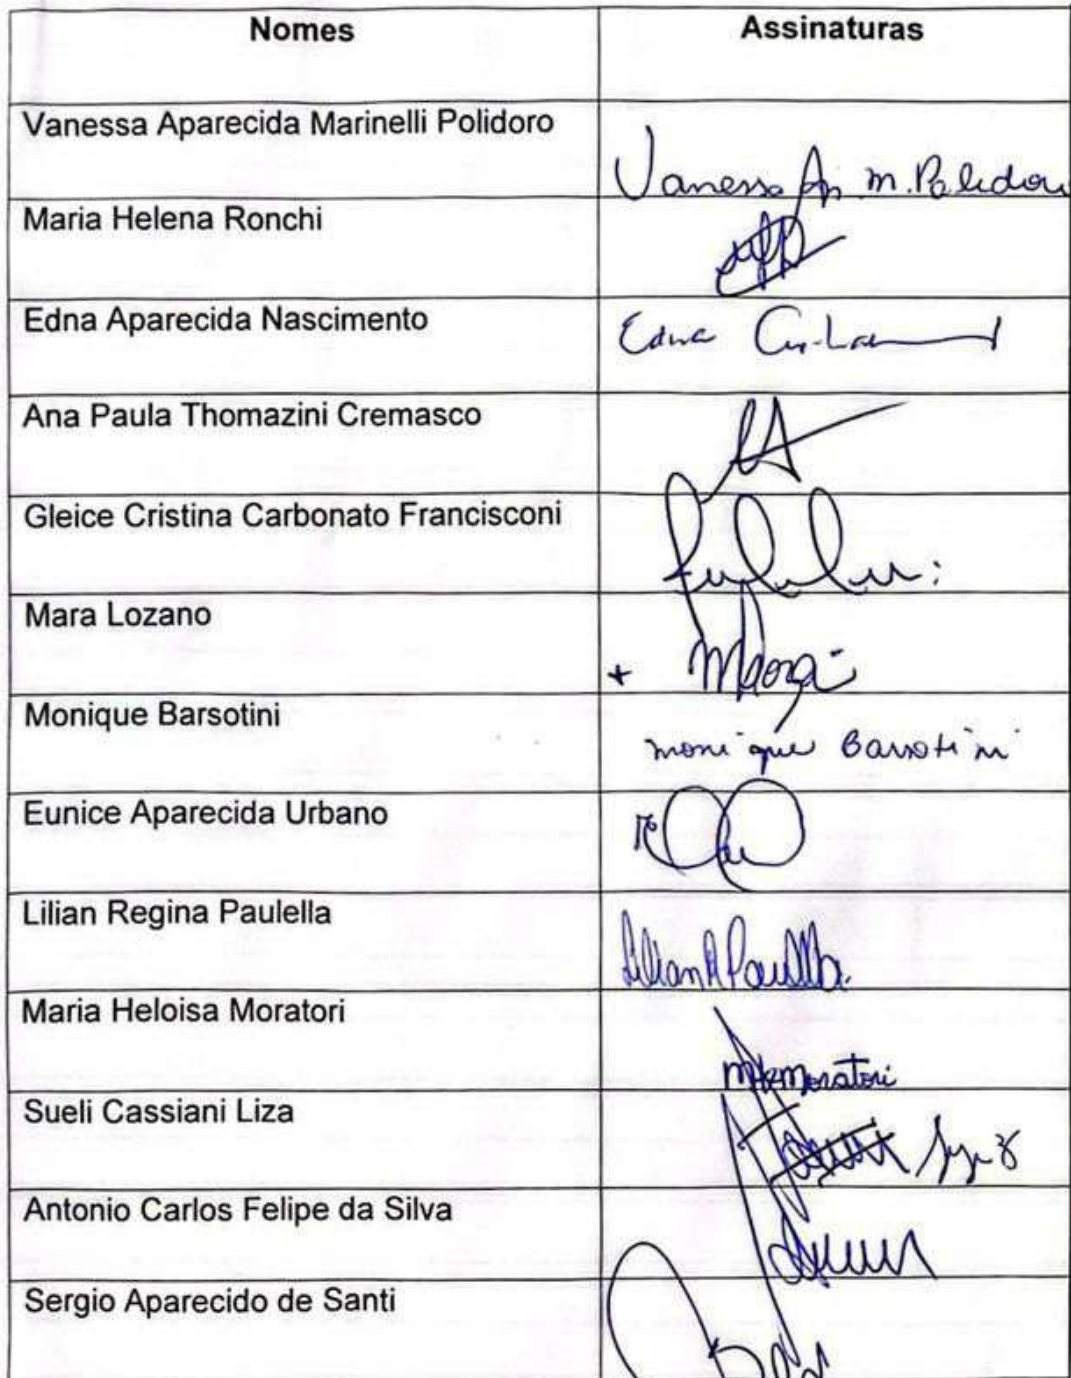 Nomes Assinaturas
Vanessa Aparecida Marinelli Polidoro
Vanessa Ap. M. Polidoro
Maria Helena Ronchi
Edna Aparecida Nascimento
Edna
Ana Paula Thomazini Cremasco
Gleice Cristina Carbonato Francisconi
Mara Lozano
Monique Barsotini
monique Barsotini
Eunice Aparecida Urbano
Lilian Regina Paulella
Lilian R Paulella
Maria Heloisa Moratori
MHMoratori
Sueli Cassiani Liza
Antonio Carlos Felipe da Silva
Sergio Aparecido de Santi